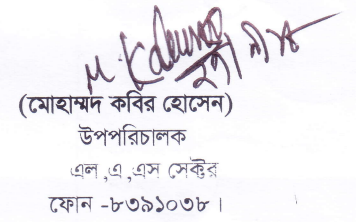 (মোহাম্মদ কবির হোসেন)
উপপরিচালক
এল,এ,এস সেক্টর
ফোন -৮৩৯১০৩৮।